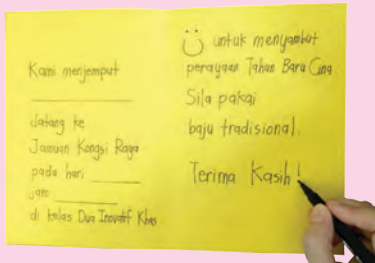 Kami menjemput
datang ke
Jamuan Kongsi Raya
pada hari
jam
di kelas Dua Inovatif Khas
untuk menyambut
perayaan Tahun Baru Cina
Sila pakai
baju tradisional.
Terima Kasih!